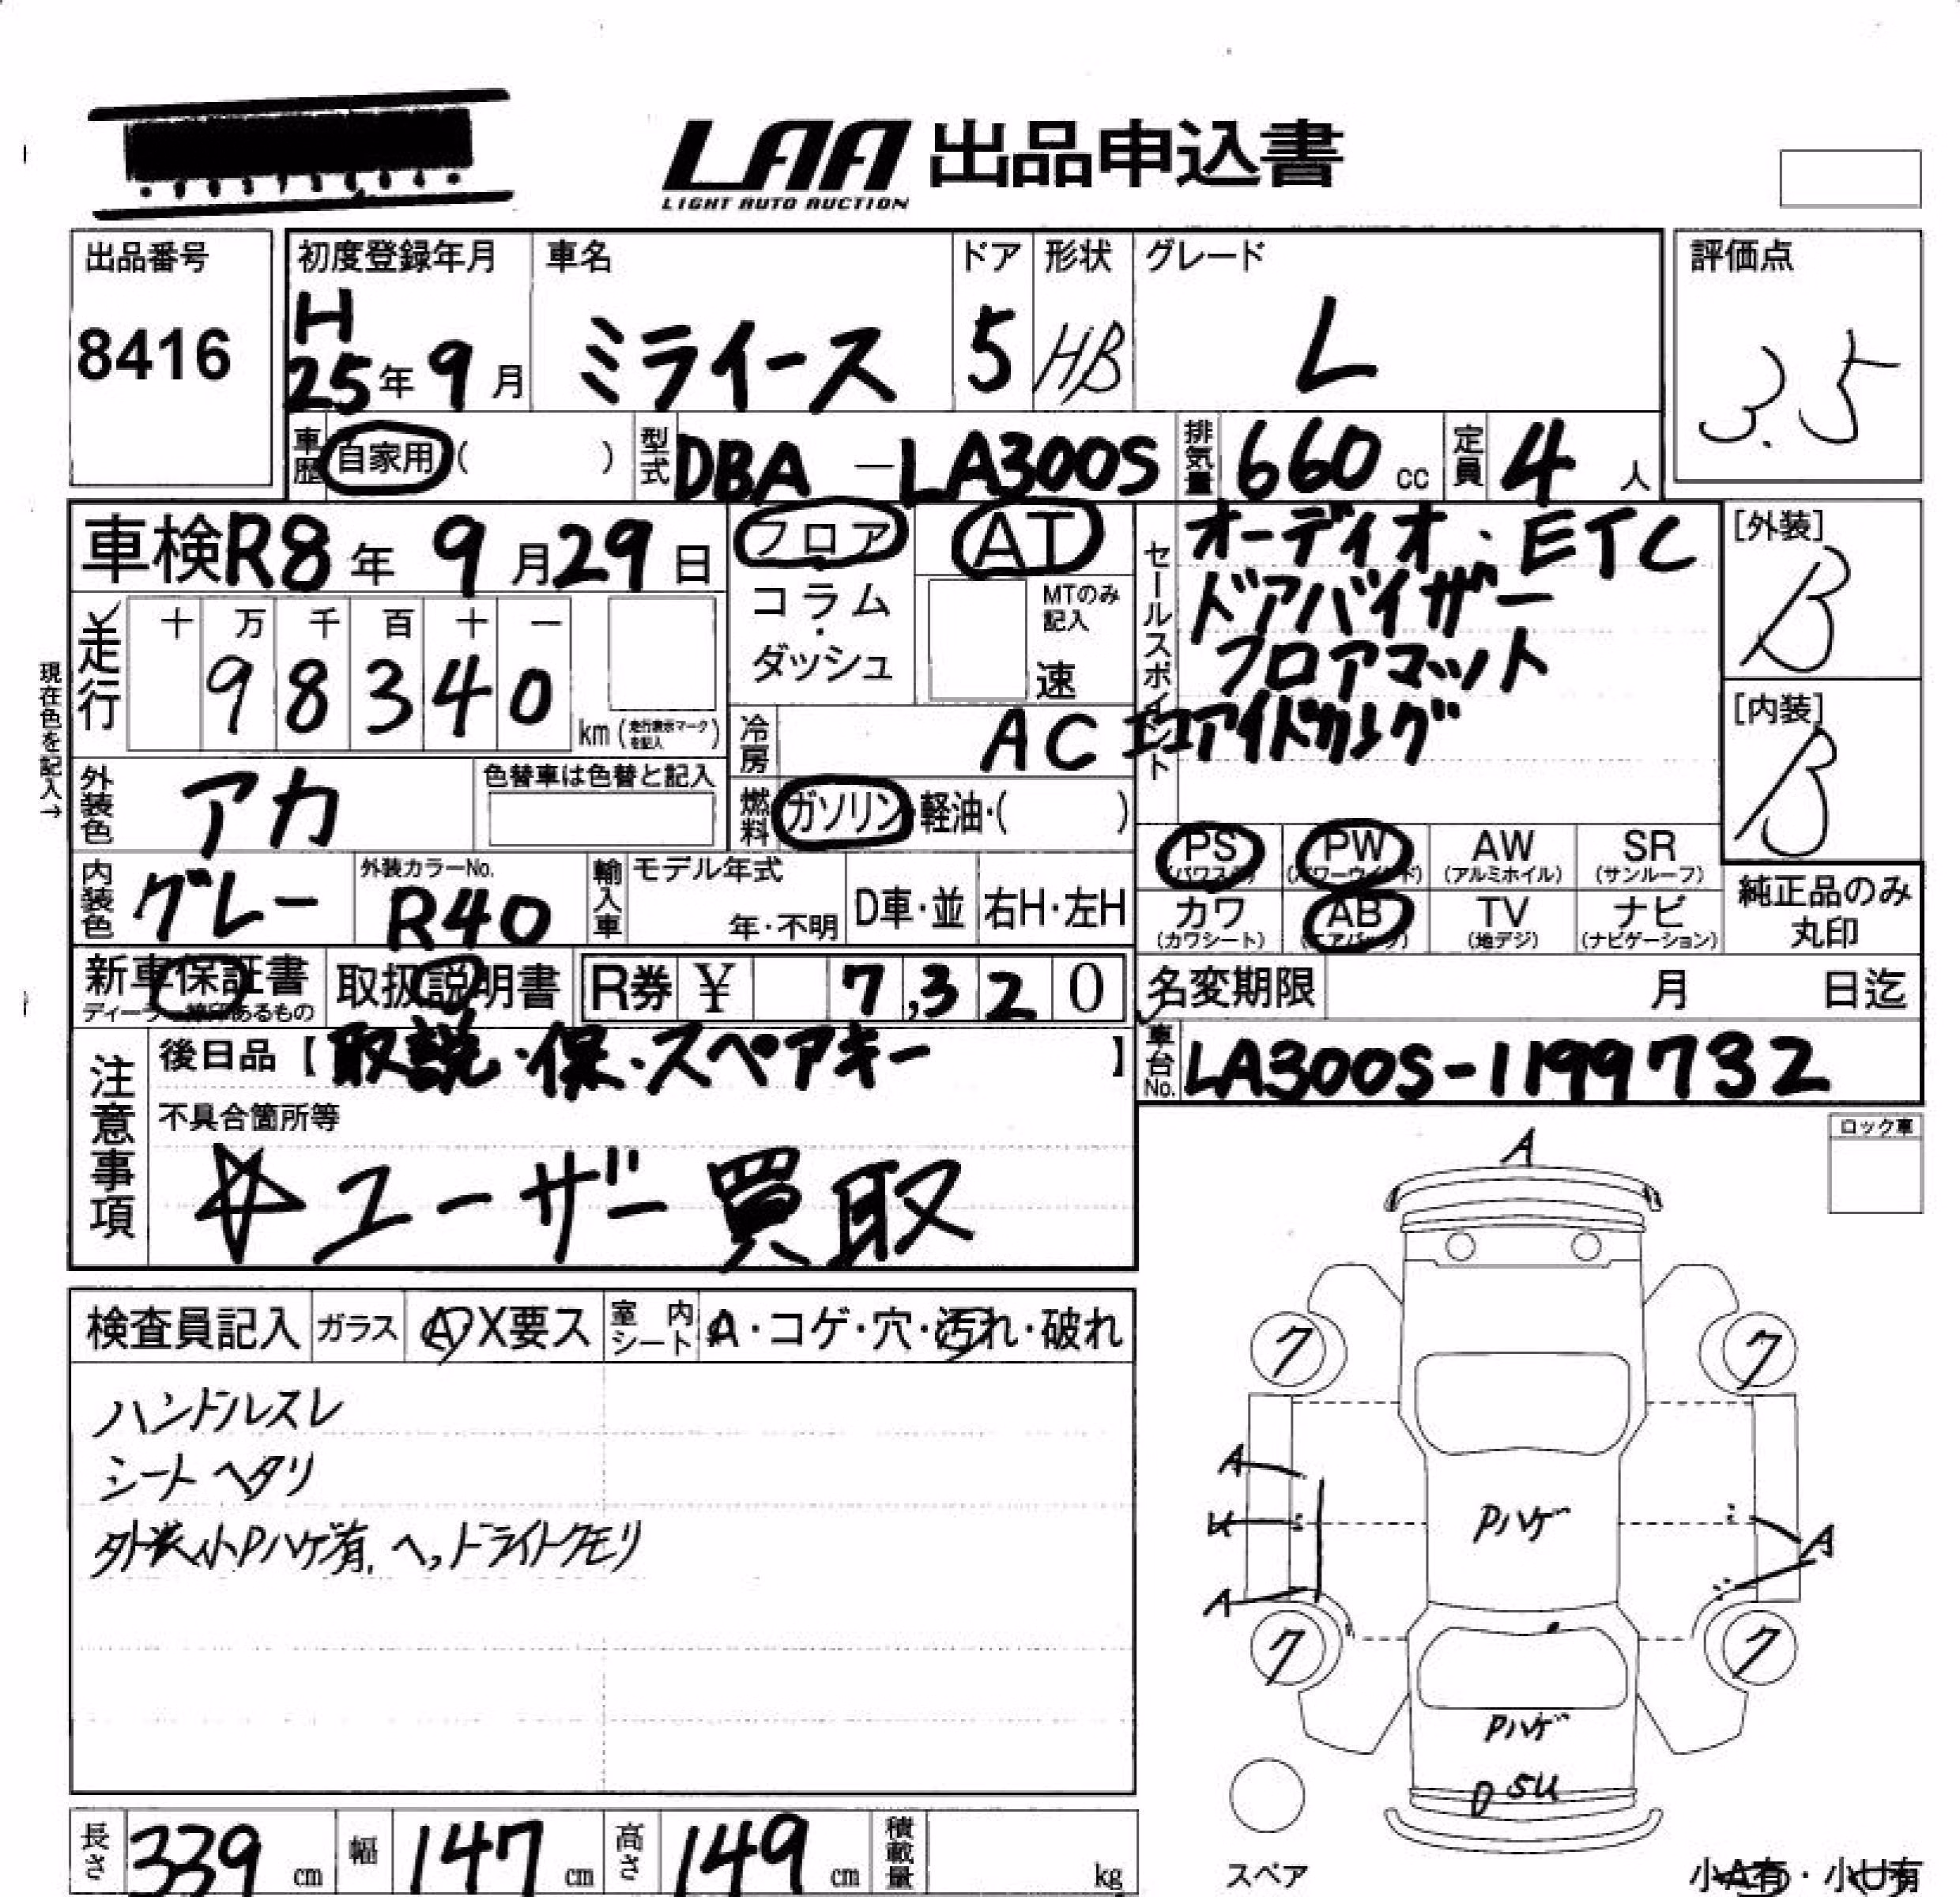 LAA 出品申込書
LIGHT AUTO AUCTION
出品番号
8416
初度登録年月
H
25年9月
車名
ミライース
ドア
5
形状
HB
グレード
L
評価点
3.5
車歴 自家用( )
型式 DBA-LA300S
排気量 660 cc
定員 4 人
車検R8年9月29日
フロア・コラム・ダッシュ
AT
MTのみ記入
速
セールスポイント
オーディオ・ETC
ドアバイザー
フロアマット
エコアイドリング
[外装]
B
[内装]
B
現在色を記入→
走行
十 万 千 百 十 一
9 8 3 4 0
km(走行表示マークを記入)
冷房 AC
外装色 アカ
色替車は色替と記入
燃料 ガソリン・軽油・( )
PS PW AW SR
(パワステ) (パワーウインド) (アルミホイル) (サンルーフ)
カワ AB TV ナビ
(カワシート) (エアバッグ) (地デジ) (ナビゲーション)
純正品のみ
丸印
内装色 グレー
外装カラーNo.
R40
輸入車
モデル年式
年・不明
D車・並 右H・左H
新車保証書
取扱説明書
R券 ¥ 7,320
名変期限 月 日迄
車台No. LA300S-1199732
注意事項
後日品【取説・保・スペアキー】
不具合箇所等
☆ユーザー買取
ロック車
検査員記入 ガラス A・X要ス 室内シート A・コゲ・穴・汚れ・破れ
ハンドルスレ
シートヘタリ
外装小Pハゲ有、ヘッドライトクモリ
A
ク ク
A
U
A
Pハゲ
A
ク ク
Pハゲ
5U
スペア
小A有・小U有
長さ 339 cm 幅 147 cm 高さ 149 cm 積載量 kg